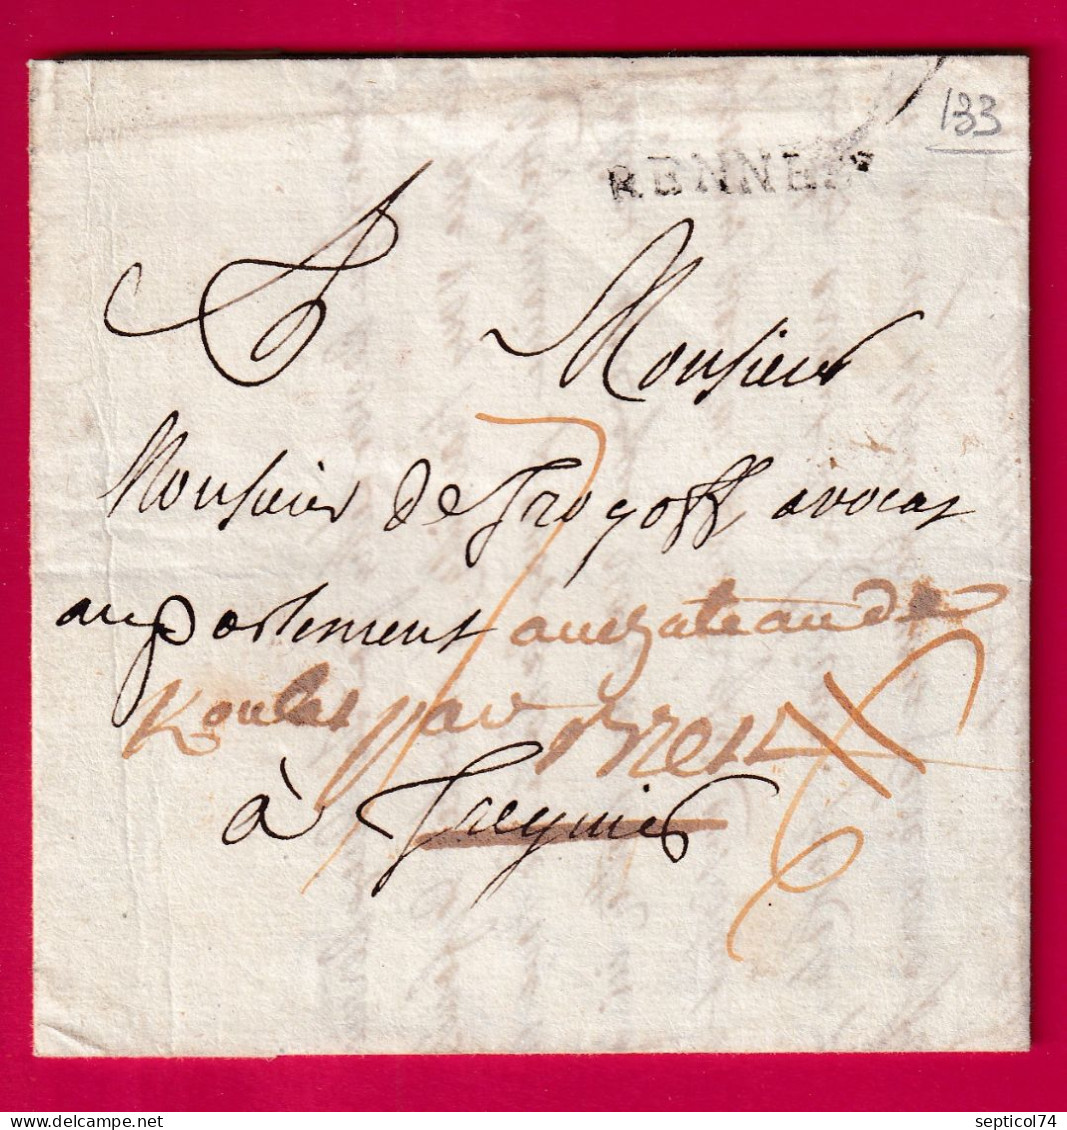 133
RENNES
A Monsieur
Monsieur de Trogoff avocat
au parlement au chateau de
par Brest
à Treguier
septicol74